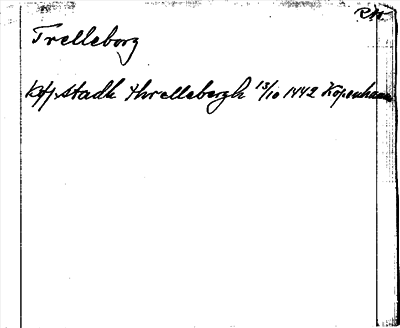 RA.
Trelleborg
Køpstadh threlleborgh 13/10 1442 Kopenhamn